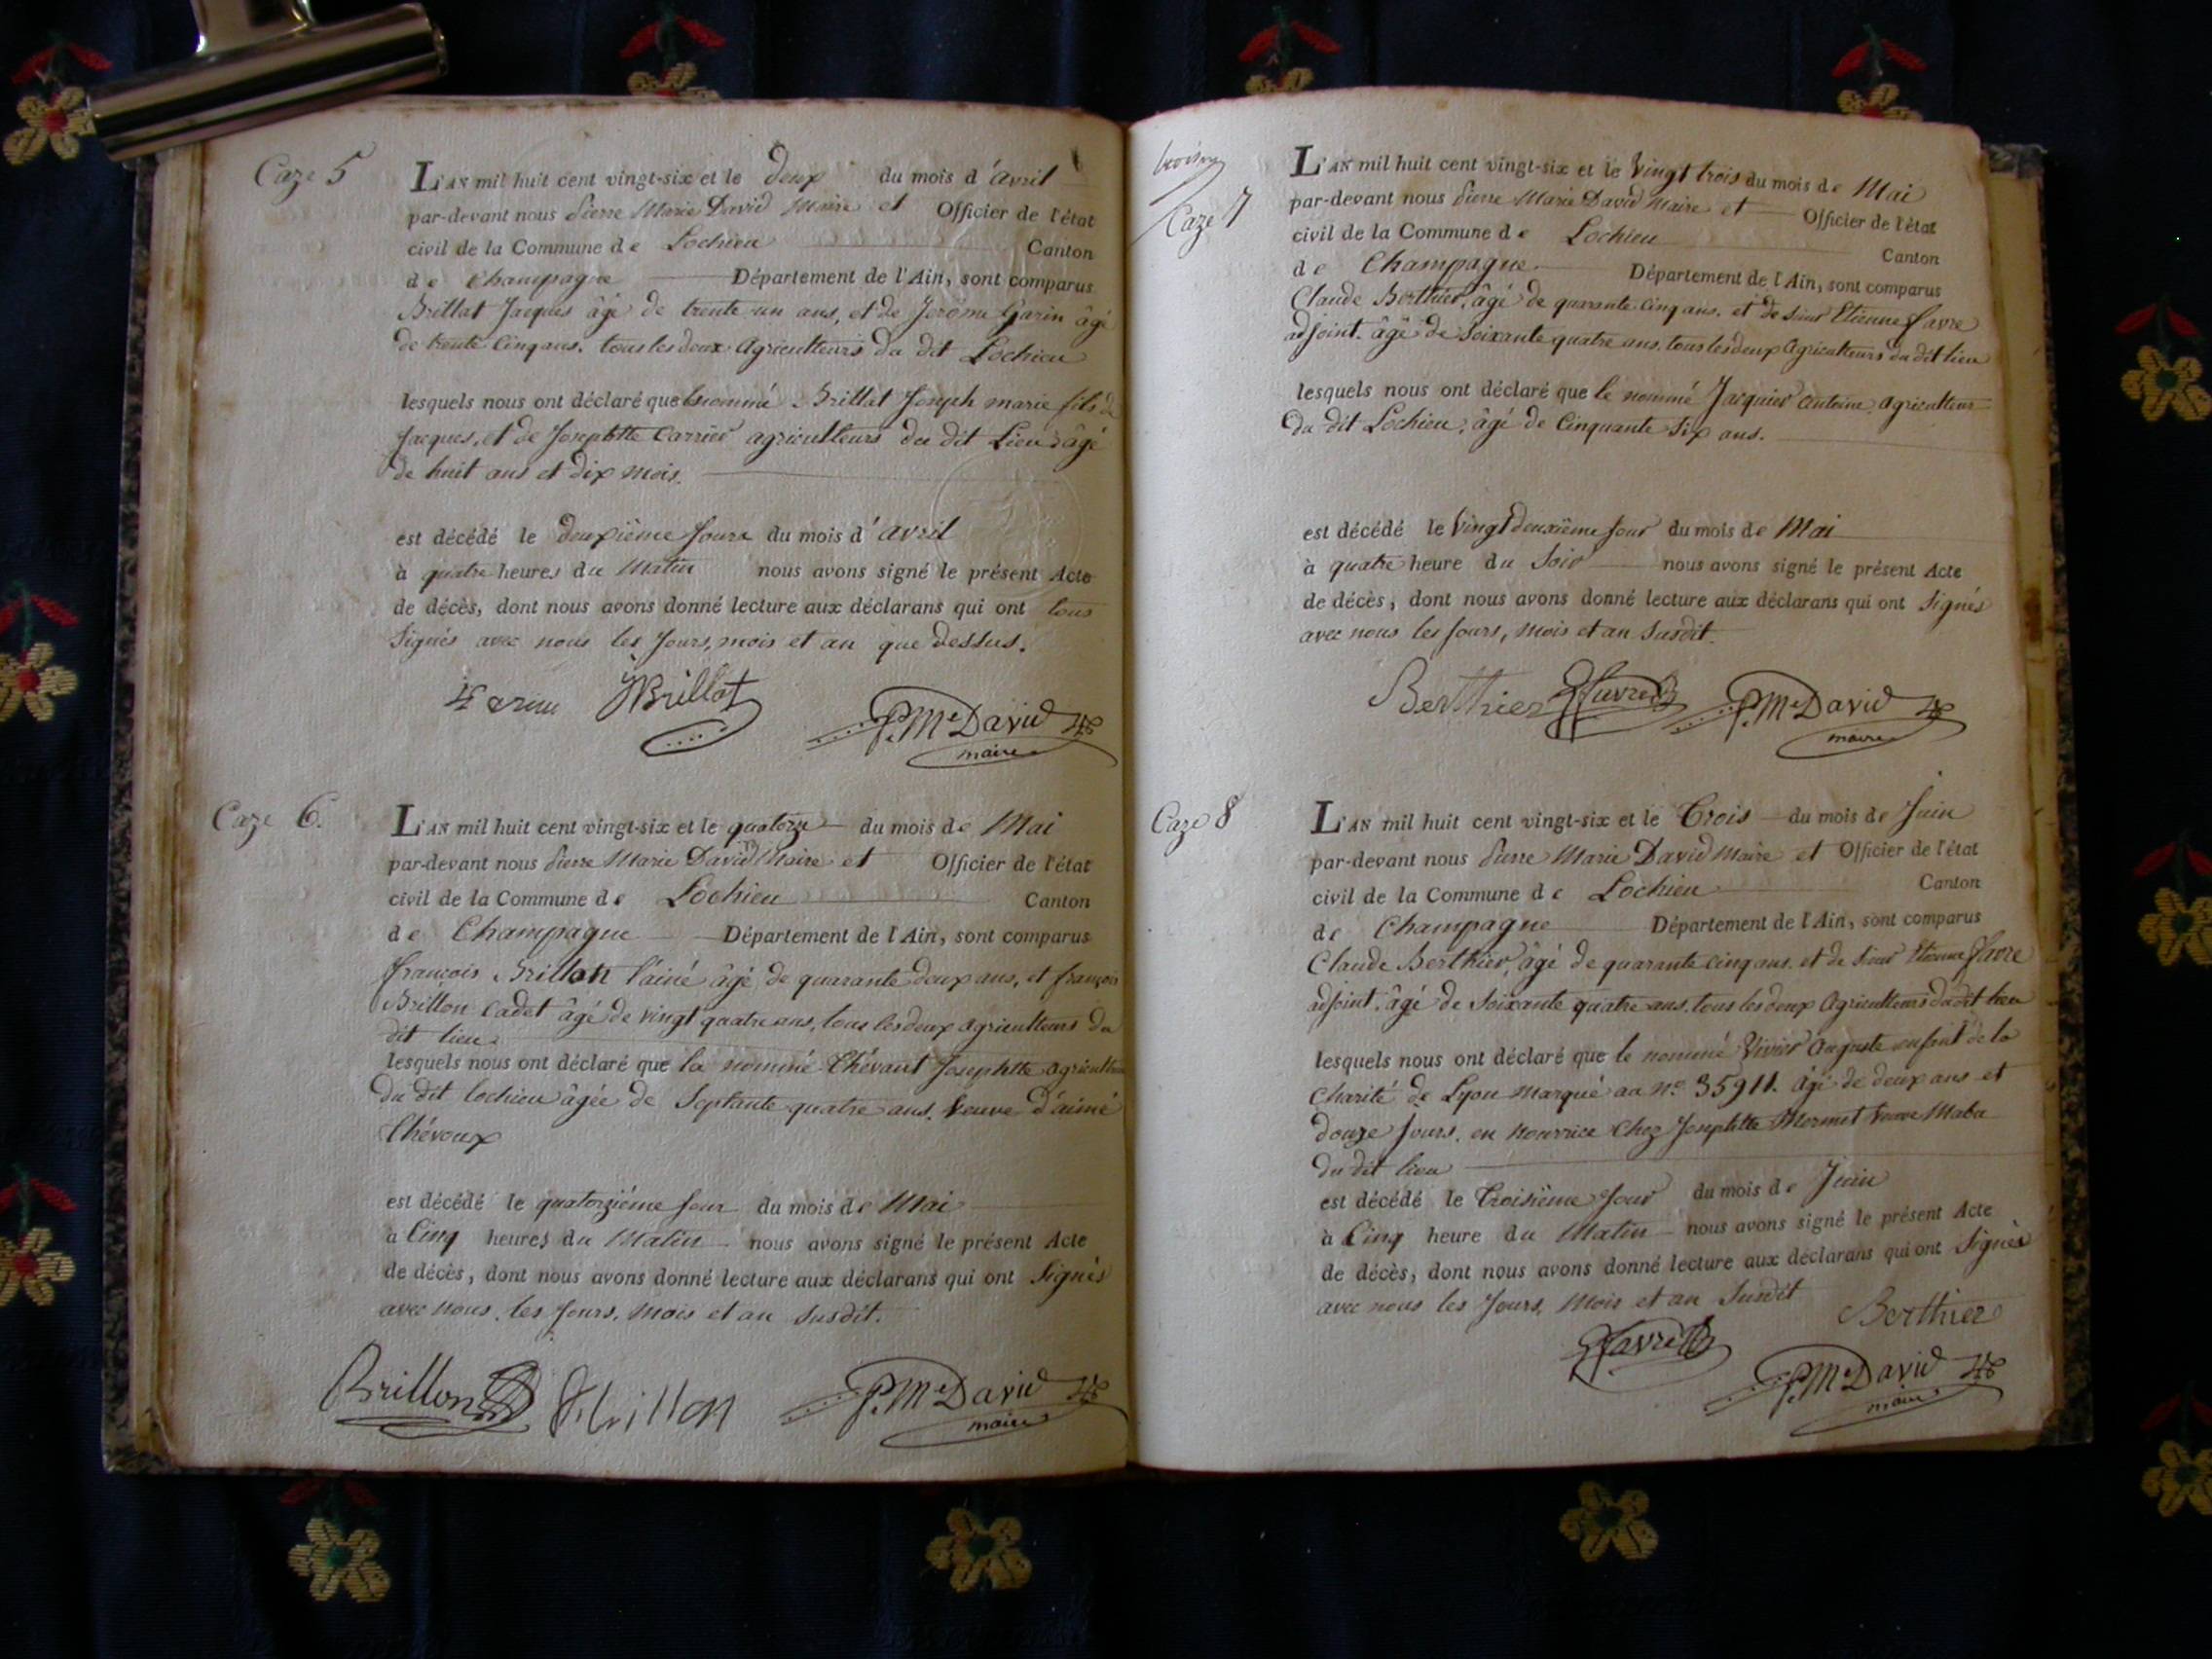 Caze 5
L'AN mil huit cent vingt-six et le deux du mois d'avril
par-devant nous Pierre Marie David Maire et Officier de l'état
civil de la Commune de Lochieu Canton
de Champagne Département de l'Ain, sont comparus
Brillat Jacques âgé de trente un ans, et de Jerôme Garin âgé
de trente cinq ans. tous les deux agriculteurs du dit Lochieu
lesquels nous ont déclaré que le nommé Brillat Joseph marie fils de
Jacques, et de Josephtte Carrier agriculteurs du dit Lieu âgé
de huit ans et dix mois.
est décédé le deuxième Jour du mois d'avril
à quatre heures du Matin nous avons signé le présent Acte
de décès, dont nous avons donné lecture aux déclarans qui ont tous
Signés avec nous les Jours, mois et an que dessus.
Garin JBrillat P.Me David
maire
Caze 6.
L'AN mil huit cent vingt-six et le quatorze du mois de Mai
par-devant nous Pierre Marie David Maire et Officier de l'état
civil de la Commune de Lochieu Canton
de Champagne Département de l'Ain, sont comparus
françois Brillon l'ainé âgé de quarante deux ans, et françois
Brillon Cadet âgé de vingt quatre ans, tous les deux agriculteurs du
dit lieu
lesquels nous ont déclaré que la nommé Chévant Josephtte
du dit lochieu âgée de Septante quatre ans. Veuve d'aimé
Chévoux
est décédé le quatorziéme Jour du mois de Mai
à Cinq heures du Matin nous avons signé le présent Acte
de décès, dont nous avons donné lecture aux déclarans qui ont Signés
avec nous. les Jours, mois et an susdit.
Brillon Brillon P.Me David
maire
Caze 7
L'AN mil huit cent vingt-six et le Vingt trois du mois de Mai
par-devant nous Pierre Marie David Maire et Officier de l'état
civil de la Commune de Lochieu Canton
de Champagne Département de l'Ain, sont comparus
Claude Berthier, âgé de quarante Cinq ans. et de Sieur Etienne favre
adjoint. âgé de Soixante quatre ans. tous les deux Agriculteurs du dit lieu
lesquels nous ont déclaré que le nommé Jacquier antoine agriculteur
du dit Lochieu, âgé de Cinquante Six ans.
est décédé le Vingt deuxième Jour du mois de Mai
à quatre heure du Soir nous avons signé le présent Acte
de décès, dont nous avons donné lecture aux déclarans qui ont Signés
avec nous les Jours, mois et an Susdit.
Berthier favre P.Me David
maire
Caze 8
L'AN mil huit cent vingt-six et le Trois du mois de Juin
par-devant nous Pierre Marie David Maire et Officier de l'état
civil de la Commune de Lochieu Canton
de Champagne Département de l'Ain, sont comparus
Claude Berthier, âgé de quarante cinq ans. et de Sieur Etienne favre
adjoint. âgé de Soixante quatre ans. tous les deux Agriculteurs du dit lieu
lesquels nous ont déclaré que le nommé Vivier Auguste enfant de la
Charité de Lyon marqué au No. 35911. âgé de deux ans et
douze Jours. en nourrice Chez Josephtte Mermet Veuve Mabu
du dit lieu
est décédé le Troisième Jour du mois de Juin
à Cinq heure du Matin nous avons signé le présent Acte
de décès, dont nous avons donné lecture aux déclarans qui ont Signés
avec nous les Jours, Mois et an Susdit
Berthier
favre
P.Me David
maire